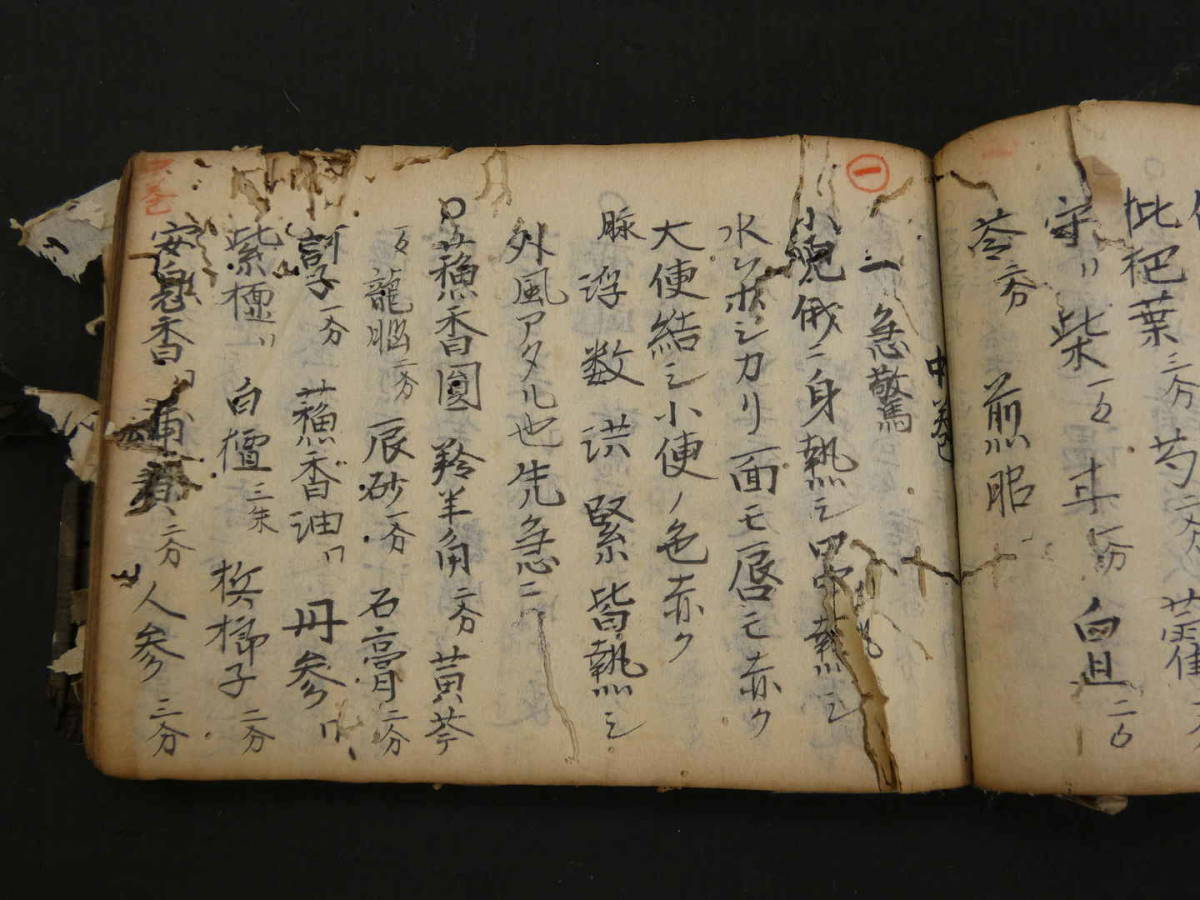 枇杷葉 三分 芍
守〃 柴 一匁
苓 二分 煎服
中巻
㊀
一 急驚
小児俄ニ身熱シ四 熱シ
水ヲホシカリ面モ唇モ赤ク
大便結シ小便ノ色赤ク
脉浮数洪緊皆熱シ
外風アタル也先急ニ
蘓香圓 羚羊角 二分 黄芩
龍脳 二分 辰砂 一分 石膏 二分
訶子 一分 蘓香油〃 丹参〃
紫檀〃 白檀 三朱 檳榔子 二分
安息香 二分 人参 三分